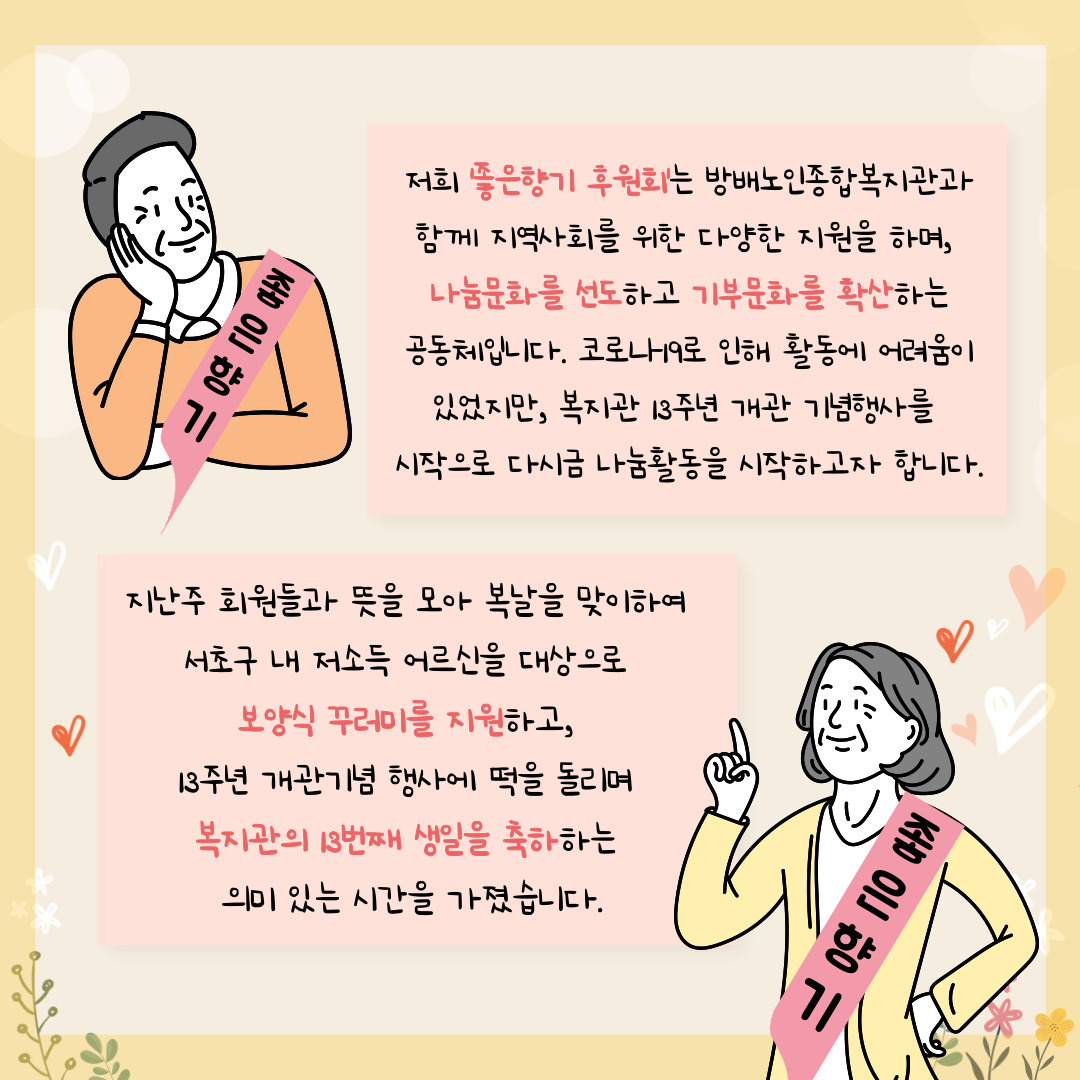 저희 '좋은향기 후원회'는 방배노인종합복지관과
함께 지역사회를 위한 다양한 지원을 하며,
나눔문화를 선도하고 기부문화를 확산하는
공동체입니다. 코로나19로 인해 활동에 어려움이
있었지만, 복지관 13주년 개관 기념행사를
시작으로 다시금 나눔활동을 시작하고자 합니다.
좋은향기
지난주 회원들과 뜻을 모아 복날을 맞이하여
서초구 내 저소득 어르신을 대상으로
보양식 꾸러미를 지원하고,
13주년 개관기념 행사에 떡을 돌리며
복지관의 13번째 생일을 축하하는
의미 있는 시간을 가졌습니다.
좋은향기